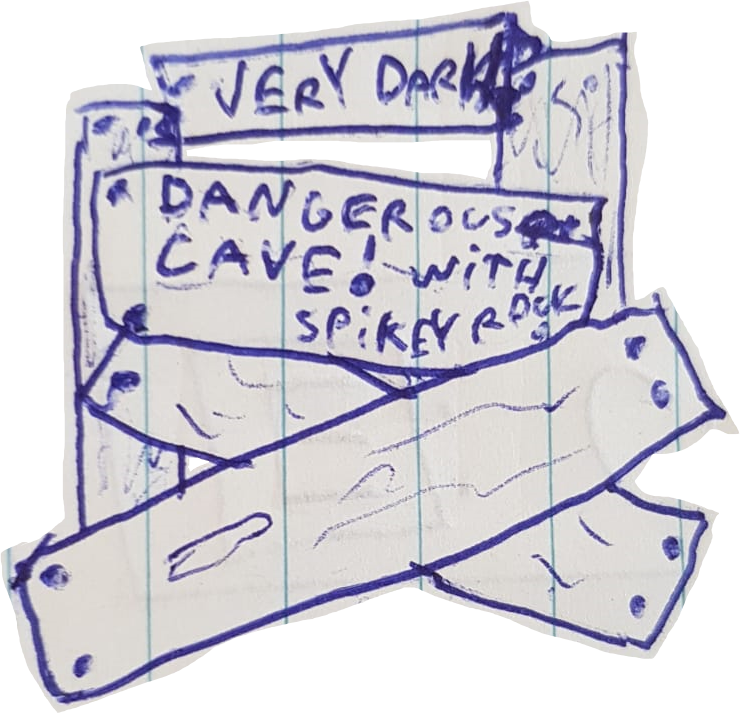 VERY DARK
DANGEROUS
CAVE! WITH
SPIKEY ROCKS